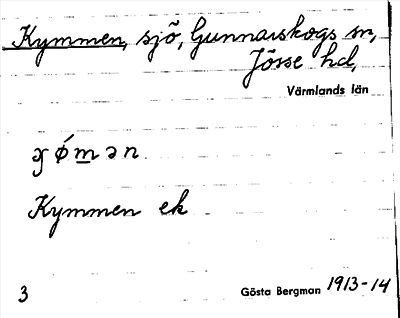 Kymmen, sjö, Gunnarskogs sn,
Jösse hd,
Värmlands län
Kymmen ek
3
Gösta Bergman 1913-14